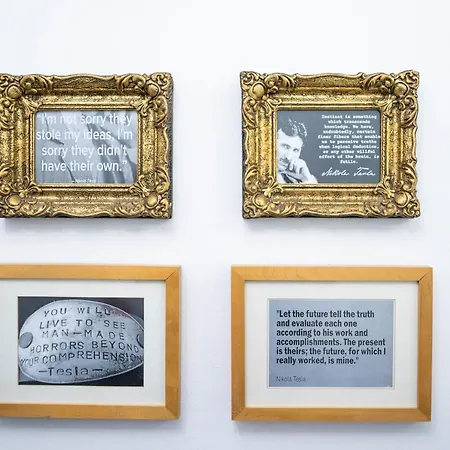 "I'm not sorry they
stole my ideas. I'm
sorry they didn't
have their own."
—Nikola Tesla
Instinct is something
which transcends
knowledge. We have,
undoubtedly, certain
finer fibers that enable
us to perceive truths
when logical deduction,
or any other willful
effort of the brain, is
futile.
Nikola Tesla
YOU WILL
LIVE TO SEE
MAN-MADE
HORRORS BEYOND
YOUR COMPREHENSION
-Tesla-
"Let the future tell the truth
and evaluate each one
according to his work and
accomplishments. The present
is theirs; the future, for which I
really worked, is mine."
Nikola Tesla